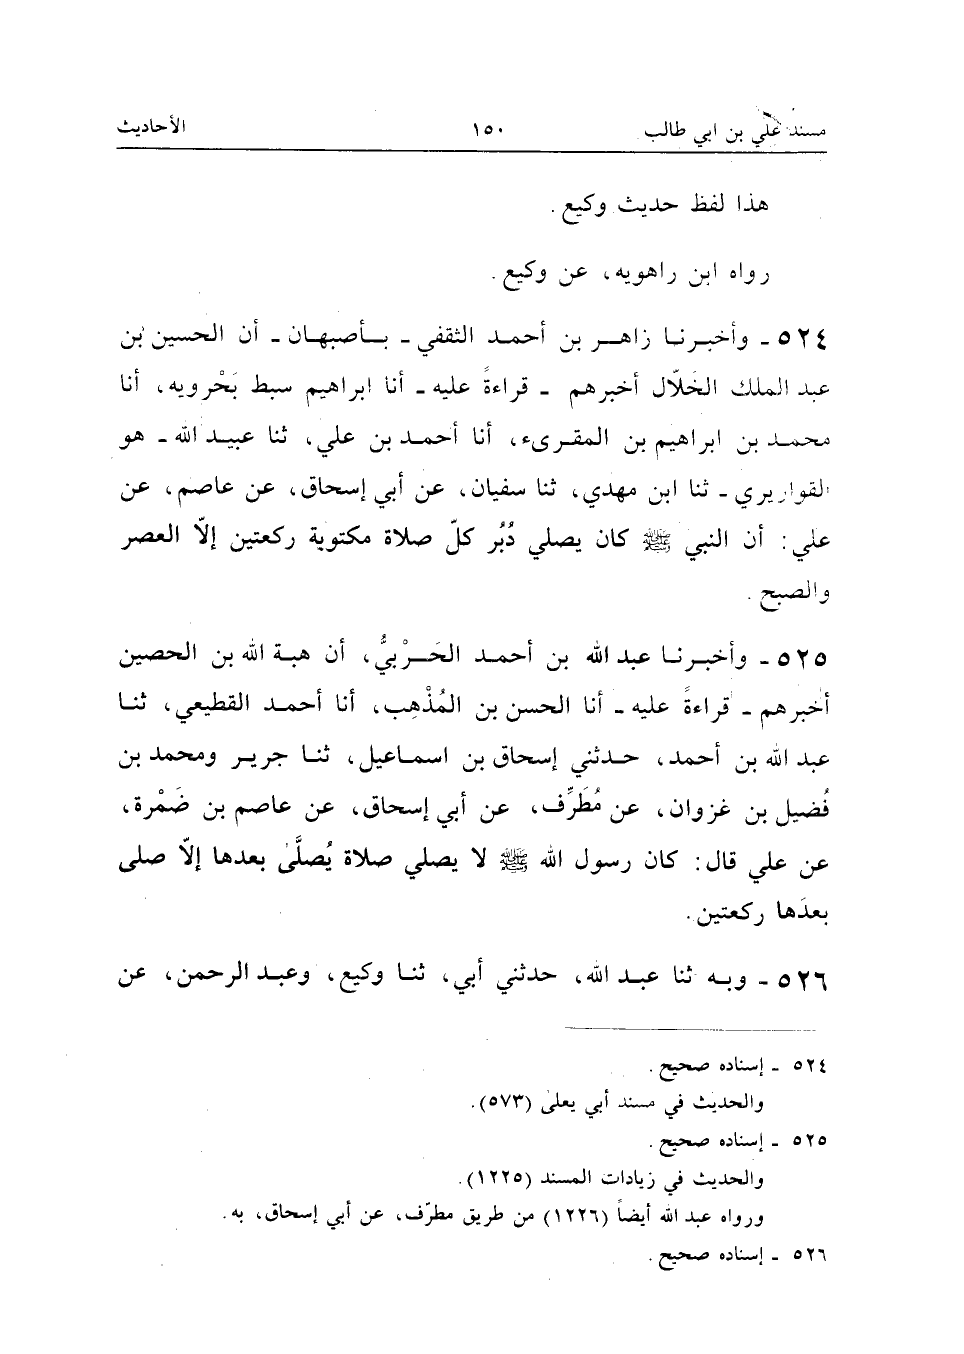 مسند علي بن ابي طالب ١٥٠ الأحاديث
هذا لفظ حديث وكيع.
رواه ابن راهويه، عن وكيع.
٥٢٤ ـ وأخبرنا زاهر بن أحمد الثقفي ـ بأصبهان ـ أن الحسين بن
عبد الملك الخَلّال أخبرهم ـ قراءةً عليه ـ أنا ابراهيم سبط بَحْرويه، أنا
محمد بن ابراهيم بن المقرىء، أنا أحمد بن علي، ثنا عبيد الله ـ هو
القواريري ـ ثنا ابن مهدي، ثنا سفيان، عن أبي إسحاق، عن عاصم، عن
علي: أن النبي ﷺ كان يصلي دُبُر كلّ صلاة مكتوبة ركعتين إلّا العصر
والصبح.
٥٢٥ ـ وأخبرنا عبد الله بن أحمد الحَرْبيُّ، أن هبة الله بن الحصين
أخبرهم ـ قراءةً عليه ـ أنا الحسن بن المُذْهِب، أنا أحمد القطيعي، ثنا
عبد الله بن أحمد، حدثني إسحاق بن اسماعيل، ثنا جرير ومحمد بن
فُضيل بن غزوان، عن مُطَرِّف، عن أبي إسحاق، عن عاصم بن ضَمْرة،
عن علي قال: كان رسول الله ﷺ لا يصلي صلاة يُصلَّىٰ بعدها إلّا صلى
بعدَها ركعتين.
٥٢٦ ـ وبه ثنا عبد الله، حدثني أبي، ثنا وكيع، وعبد الرحمن، عن
٥٢٤ ـ إسناده صحيح.
والحديث في مسند أبي يعلىٰ (٥٧٣).
٥٢٥ ـ إسناده صحيح.
والحديث في زيادات المسند (١٢٢٥).
ورواه عبد الله أيضاً (١٢٢٦) من طريق مطرّف، عن أبي إسحاق، به.
٥٢٦ ـ إسناده صحيح.